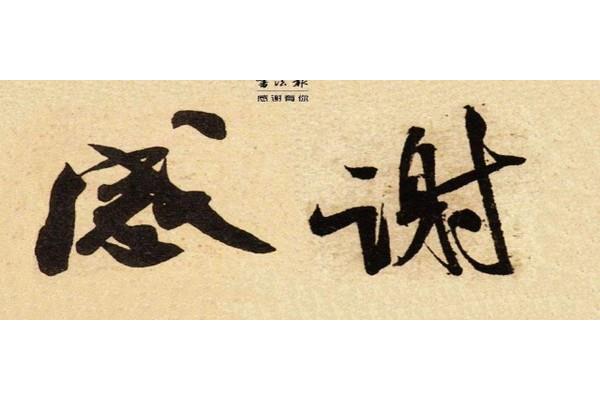 书法报
感谢有你
感谢